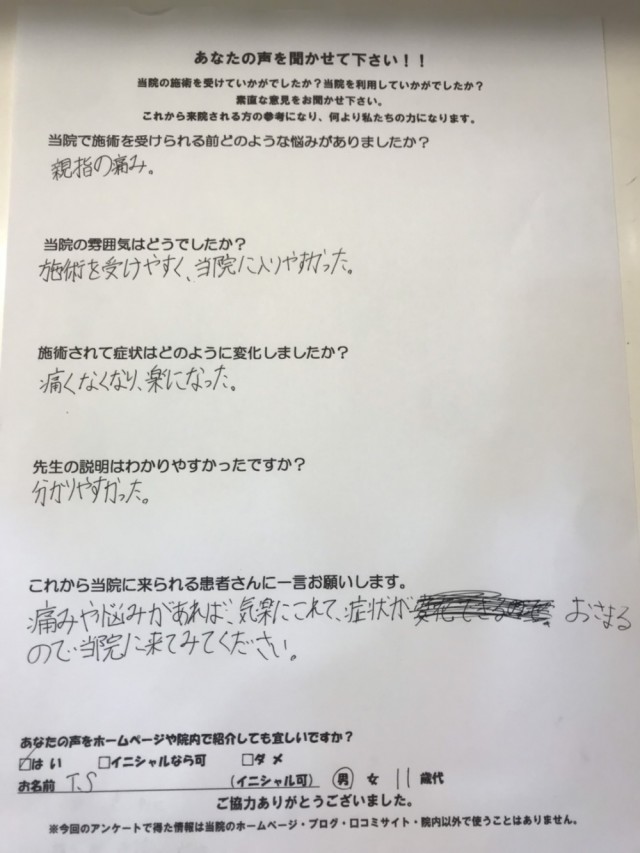 あなたの声を聞かせて下さい！！
当院の施術を受けていかがでしたか？当院を利用していかがでしたか？
素直な意見をお聞かせ下さい。
これから来院される方の参考になり、何より私たちの力になります。
当院で施術を受けられる前どのような悩みがありましたか？
親指の痛み。
当院の雰囲気はどうでしたか？
施術を受けやすく、当院に入りやすかった。
施術されて症状はどのように変化しましたか？
痛くなくなり、楽になった。
先生の説明はわかりやすかったですか？
分かりやすかった。
これから当院に来られる患者さんに一言お願いします。
痛みや悩みがあれば、気楽にこれて、症状が おさまる
ので当院に来てみてください。
あなたの声をホームページや院内で紹介しても宜しいですか？
☑はい □イニシャルなら可 □ダメ
お名前 T.S (イニシャル可) 男 女 11 歳代
ご協力ありがとうございました。
※今回のアンケートで得た情報は当院のホームページ・ブログ・口コミサイト・院内以外で使うことはありません。